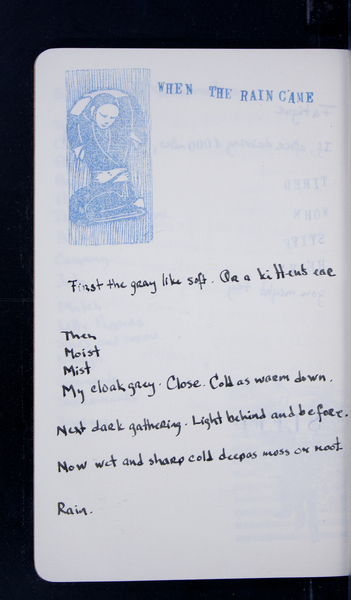 WHEN THE RAIN CAME
First the gray like soft. On a kittens ear
Then
Moist
Mist
My cloak grey. Close. Cold as warm down.
Next dark gathering. Light behind and before.
Now wet and sharp cold deep as moss on root
Rain.